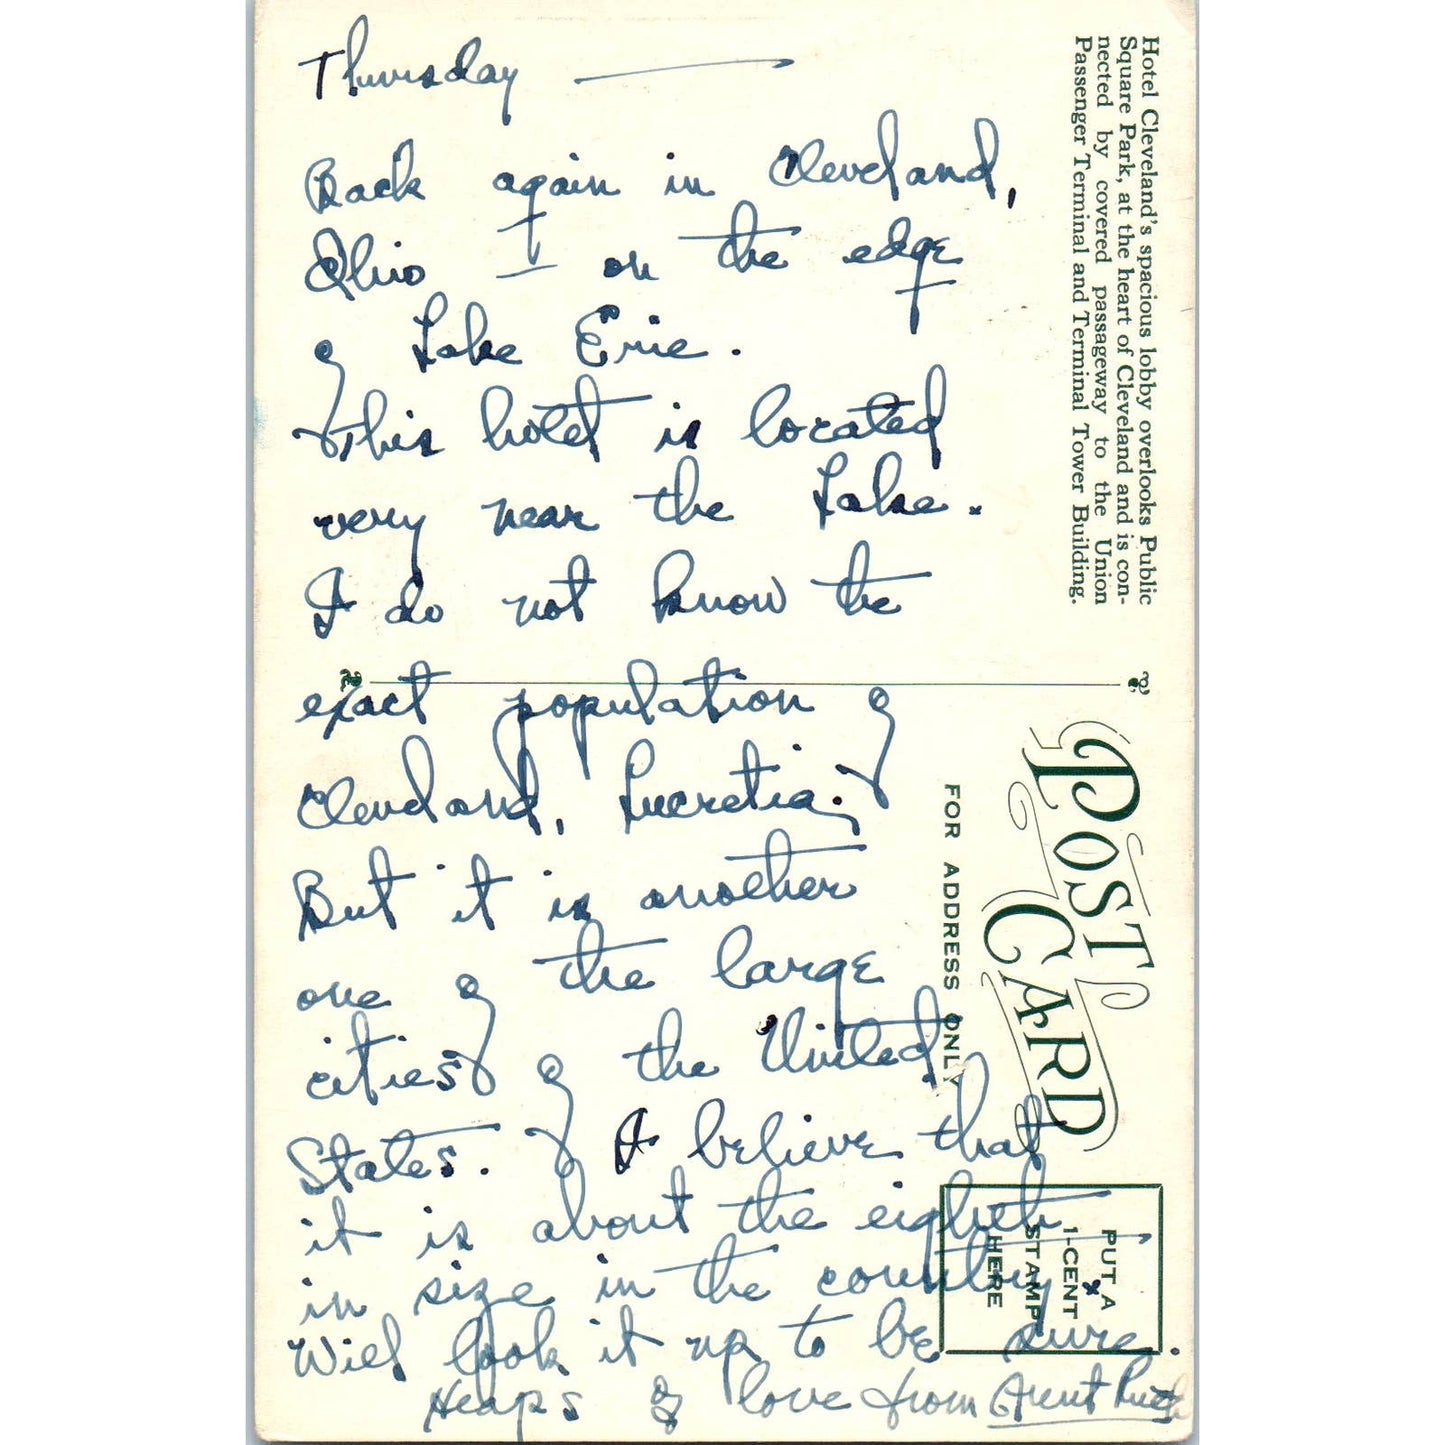 Thursday —
Back again in Cleveland,
Ohio — on the edge
of Lake Erie.
This hotel is located
very near the Lake.
I do not know the
exact population of
Cleveland, Lucretia.
But it is another
one of the large
cities of the United
States. I believe that
it is about the eighth
in size in the country
Will look it up to be sure.
Heaps of love from Aunt Ruth
Hotel Cleveland's spacious lobby overlooks Public
Square Park, at the heart of Cleveland and is con-
nected by covered passageway to the Union
Passenger Terminal and Terminal Tower Building.
POST
CARD
FOR ADDRESS ONLY
PUT A
1-CENT
STAMP
HERE